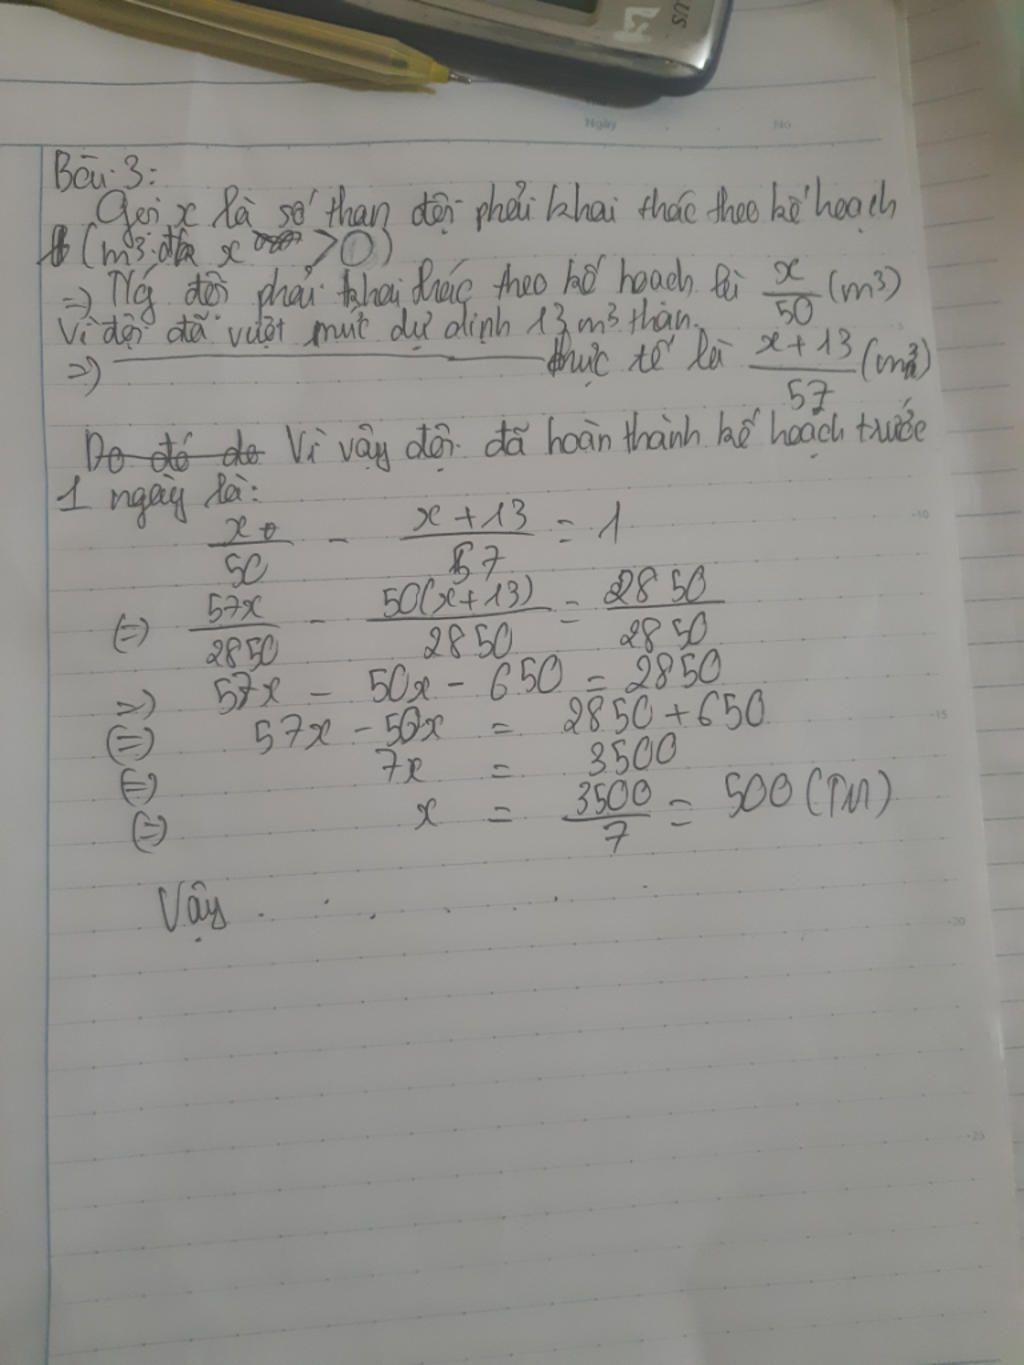 US
Ngày
No
Bài 3:
Gọi x là số than đội phải khai thác theo kế hoạch
(m3: đk x > 0)
=) TG đội phải khai thác theo kế hoạch là x/50 (m3)
Vì đội đã vượt mức dự định 13 m3 than.
=) thực tế là x+13/57 (m3)
Do đó do Vì vậy đội đã hoàn thành kế hoạch trước
1 ngày là:
x/50 - x+13/57 = 1
(=) 57x/2850 - 50(x+13)/2850 = 2850/2850
=) 57x - 50x - 650 = 2850
(=) 57x - 50x = 2850 + 650
(=) 7x = 3500
(=) x = 3500/7 = 500 (TM)
Vậy . . . . . .
10
15
20
25